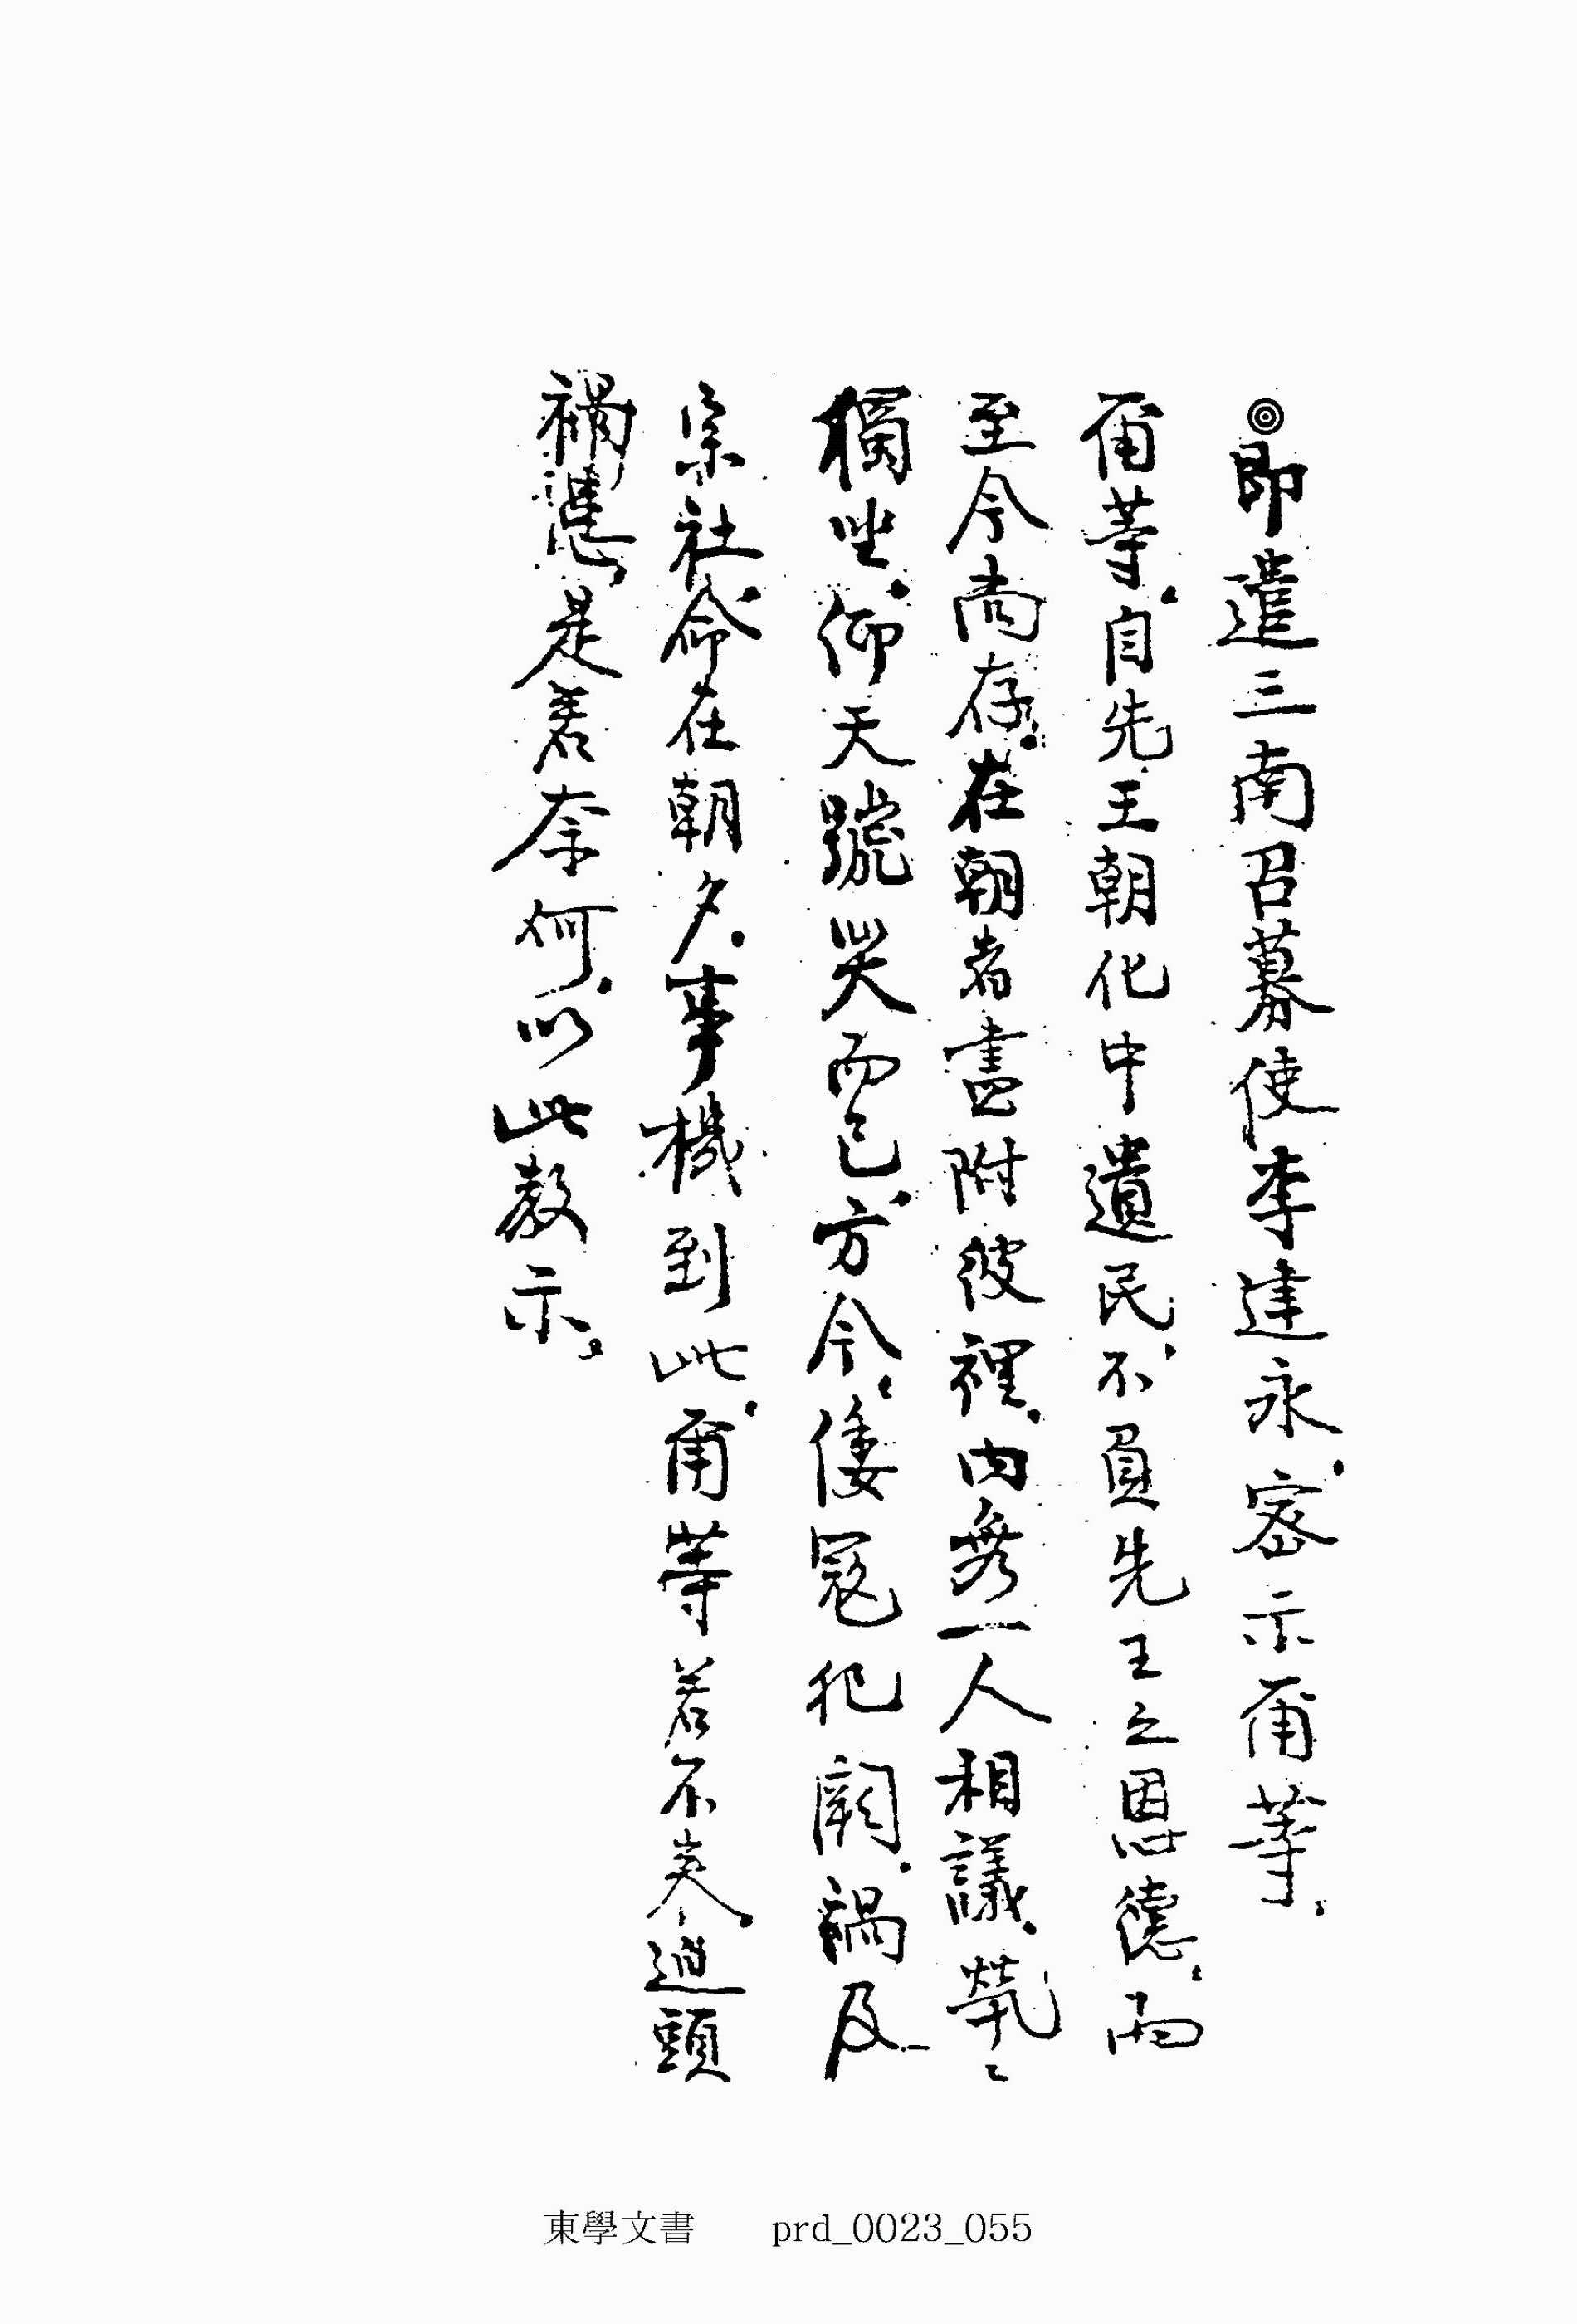 ◎即遣三南召募使李建永、密示甭等、
甭等、自先王朝化中遺民、不負先王之恩德、而
至今尚存、在朝者盡附彼裡、內無一人相議、煢〻
獨坐、仰天號哭而已、方今、倭寇犯闕、禍及
宗社、命在朝夕、事機到此、甭等若不來、迫頭
禍患、是若奈何、以此教示、
東學文書 prd_0023_055